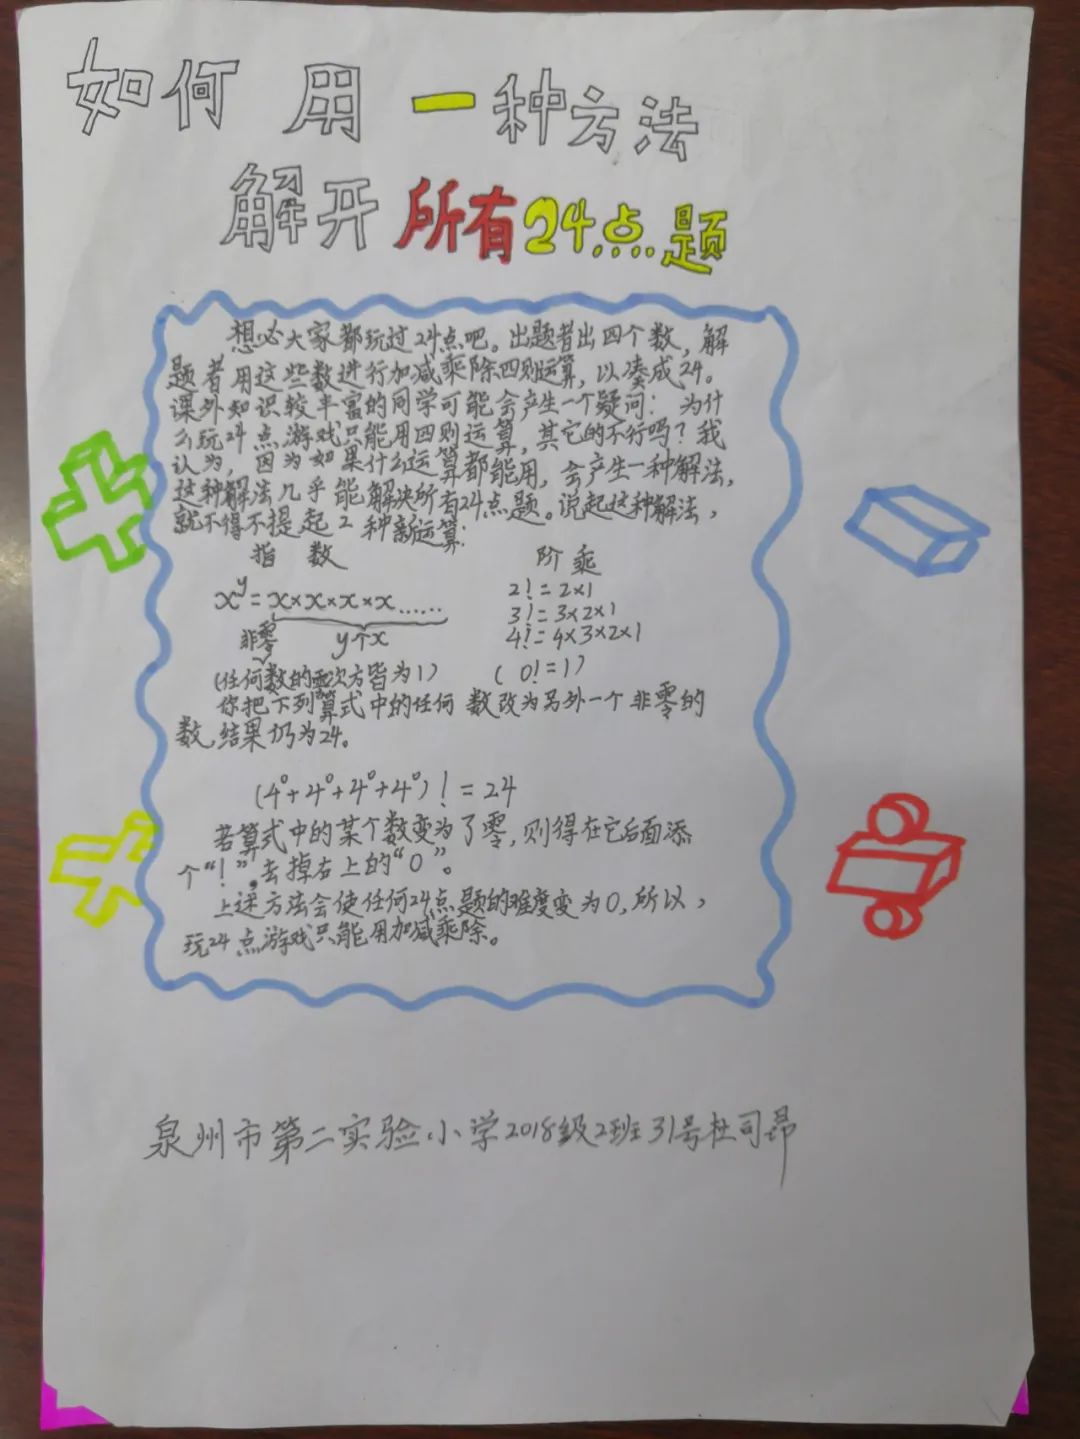 如何用一种方法
解开所有24点题
想必大家都玩过24点吧。出题者出四个数,解
题者用这些数进行加减乘除四则运算,以凑成24。
课外知识较丰富的同学可能会产生一个疑问:为什
么玩24点游戏只能用四则运算,其它的不行吗?我
认为,因为如果什么运算都能用,会产生一种解法,
这种解法几乎能解决所有24点题。说起这种解法,
就不得不提起2种新运算:
指数 阶乘
x^y=x×x×x×x...... 2!=2×1
y个x 3!=3×2×1
非零 4!=4×3×2×1
(任何数的零次方皆为1) (0!=1)
你把下列算式中的任何数改为另外一个非零的
数,结果仍为24。
(4⁰+4⁰+4⁰+4⁰)!=24
若算式中的某个数变为了零,则得在它后面添
个“!”,去掉右上的“0”。
上述方法会使任何24点题的难度变为0,所以,
玩24点游戏只能用加减乘除。
泉州市第二实验小学2018级2班31号杜司昂